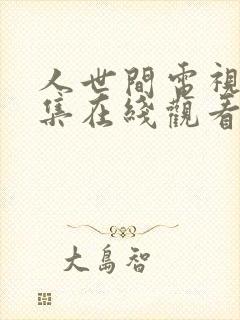 人世間電視
集在綫觀看
大島智